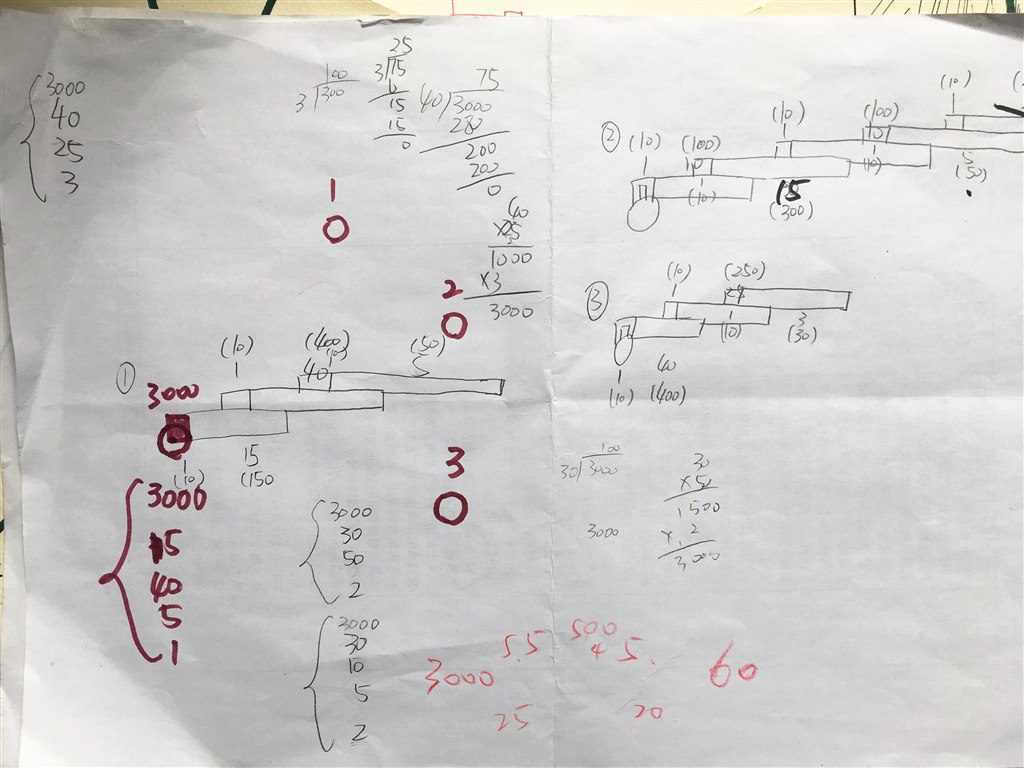 3000
40
25
3
100
3 300
25
3 75
6
15
15
0
75
40 3000
280
200
200
0
40
×25
1000
×3
3000
1
2
3
①
(10)
(400)
(10)
40
(50)
3000
(10)
15
(150
3000
15
40
5
1
3000
30
50
2
3000
30
10
5
2
②
(10)
(100)
10
(10)
(10)
15
(300)
(100)
10
(10)
(10)
5
(50)
③
(10)
(250)
25
(10)
3
(30)
40
(10)
(400)
100
30 3000
3000
30
×50
1500
×2
3000
3000
5.5
500
45
25
20
60